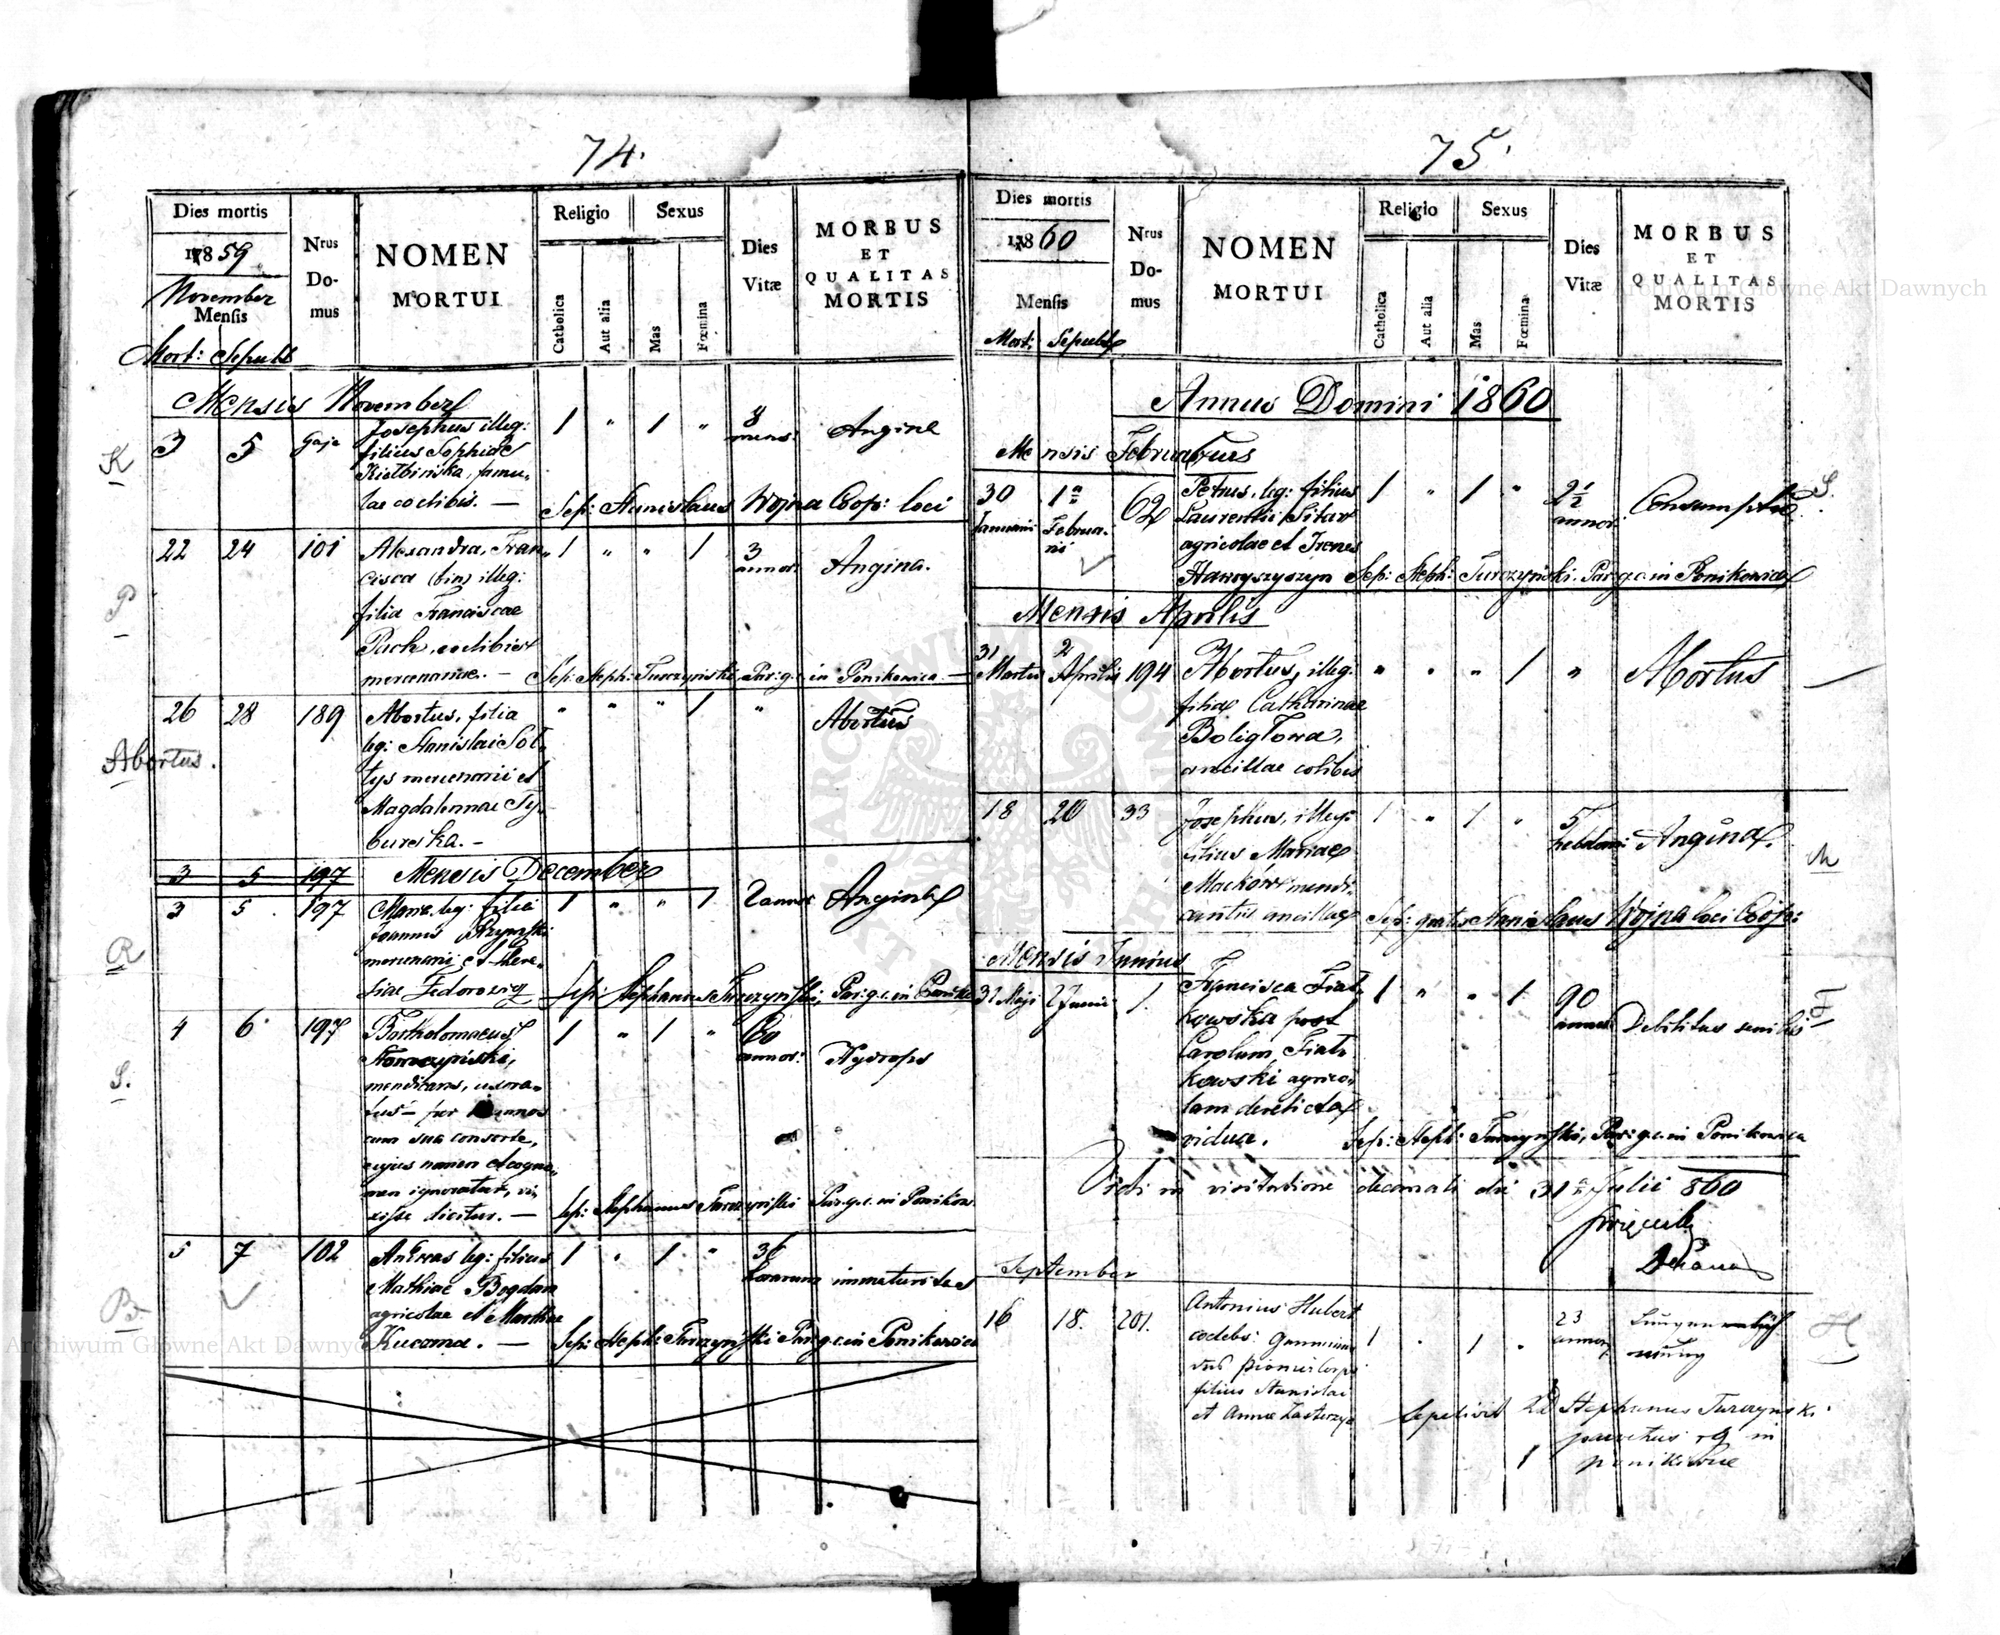 74.
Dies mortis
1859
November
Mensis
Mort: Sepult
Nrus
Do-
mus
NOMEN
MORTUI
Religio
Catholica
Aut alia
Sexus
Mas
Fœmina
Dies
Vitæ
MORBUS
ET
QUALITAS
MORTIS
Mensis November
K
3 5 Gaje Josephus illeg: 1 " 1 " 8 Angina
filius Sophiae mens:
Kielbińska, famu-
lae coelibis. —
Sep: Stanislaus Wojna Coop: loci
P
22 24 101 Alexandra, Fran- 1 " " 1 3 Angina.
cisca (bin) illeg: annor:
filia Franciscae
Pach, coelibis et
mercenariae. —
Sep: Steph: Turczyński, Par: g.c. in Ponikowica —
Abortus.
26 28 189 Abortus, filia " " " 1 " Abortus
leg: Stanislai Soł-
tys mercenarii et
Magdalenae Ty-
burska. —
3 5 197 Mensis December
R
3 5. 197 Maria leg: filia 1 " " 1 2 annor Angina
Joannis
mercenarii et There-
siae
Sep: Stephanus Turczyński, Par: g.c. in
S.
4 6 197 Bartholomaeus 1 " 1 " 60 Hydrops
annor:
mendicans, uxora-
tus — per annos
cum sua consorte,
cujus nomen et cogno-
men ignoratur, vi-
xisse dicitur. —
Sep: Stephanus Turczyński Par: g.c. in Ponikow.
B
5 7 102 Andreas leg: filius 1 " 1 " 36
Mathiae Bogdan horarum immaturitas
agricolae et Marthae
Kucarna. —
Sep: Steph: Turczyński Par: g.c. in Ponikowica
75.
Dies mortis
1860
Mensis
Mort: Sepult
Nrus
Do-
mus
NOMEN
MORTUI
Religio
Catholica
Aut alia
Sexus
Mas
Fœmina
Dies
Vitæ
MORBUS
ET
QUALITAS
MORTIS
Annus Domini 1860
Mensis Februarius
30 1 62 Petrus, leg: filius 1 " 1 " 2½ S.
Januarii Februa- Laurentii Sitar annor:
rii agricolae et Irenes
Hawryszczyn Sep: Steph: Turczyński. Par: g.c. in Ponikowica
Mensis Aprilis
31 2
Martii Aprilis 194 Abortus, illeg: " " " 1 " Abortus
filia Catharinae
Boligłowa,
ancillae colibis
18 20 33 Josephus, illeg: 1 " 1 " 5 Angina.
filius Mariae hebdom:
M
Maków mendi-
cantis ancillae Sep: gratis Stanislaus Wojna loci Coop:
Mensis Junius
31 Maji 2 Junii 1. Francisca Fiat- 1 " " 1 90 Debilitas senilis
F
kowska post annor
Carolum Fiat-
kowski agrico-
lam derelicta
vidua. Sep: Steph: Turczyński, Par: g.c. in Ponikowica
Vidi in visitatione decanali die 31 Julii 860
Decanus
September
16 18. 201. Antonius Hubert 1 " 1 " 23
H
coelebs: annor
filius Stanislai
et Annae
sepelivit Stephanus Turczynski
parochus rg in
ponikowce
Archiwum Główne Akt Dawnych
Archiwum Główne Akt Dawnych